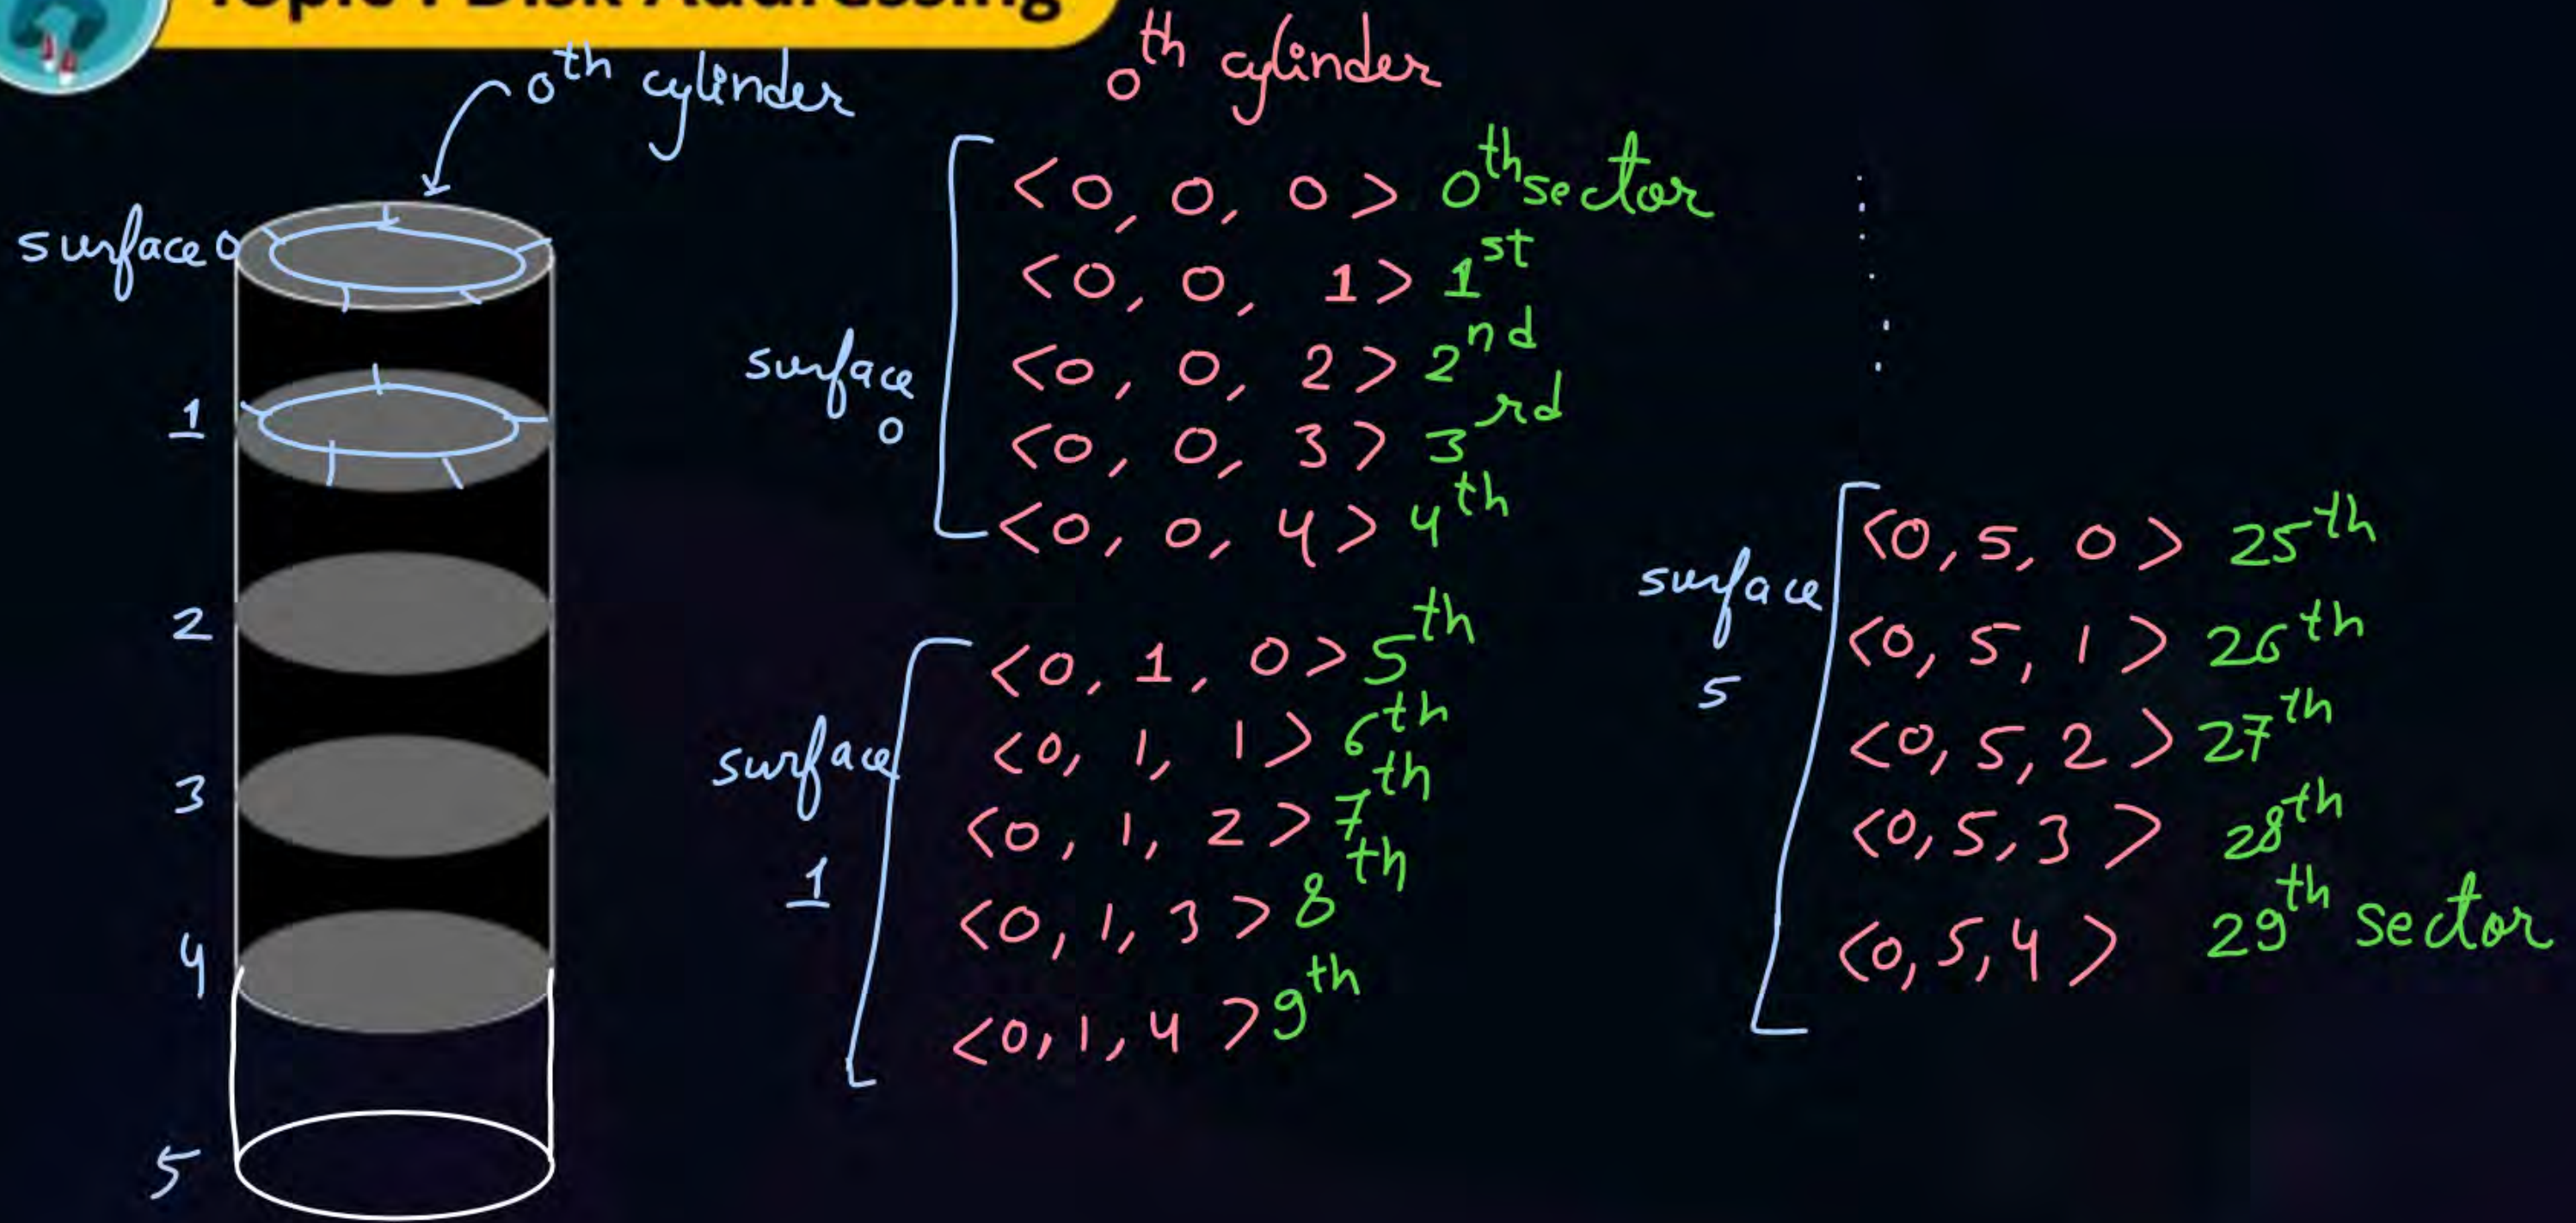 Topic : Disk Addressing
0th cylinder
surface 0
1
2
3
4
5
0th cylinder
surface 0
<0, 0, 0> 0th sector
<0, 0, 1> 1st
<0, 0, 2> 2nd
<0, 0, 3> 3rd
<0, 0, 4> 4th
surface 1
<0, 1, 0> 5th
<0, 1, 1> 6th
<0, 1, 2> 7th
<0, 1, 3> 8th
<0, 1, 4> 9th
surface 5
<0, 5, 0> 25th
<0, 5, 1> 26th
<0, 5, 2> 27th
<0, 5, 3> 28th
<0, 5, 4> 29th sector